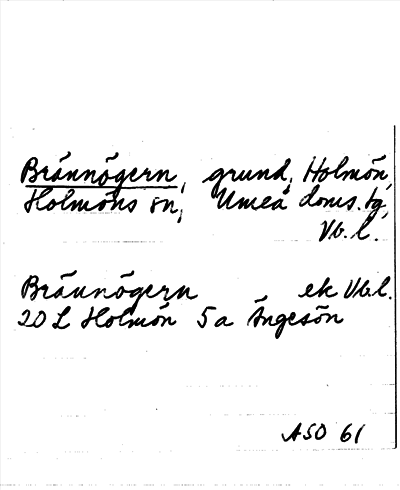 Brännögern, grund, Holmön,
Holmöns sn, Umeå doms.tg,
Vb. l.
Brännögern ek Vb.l.
20 L Holmön 5a Ängesön
ASO 61